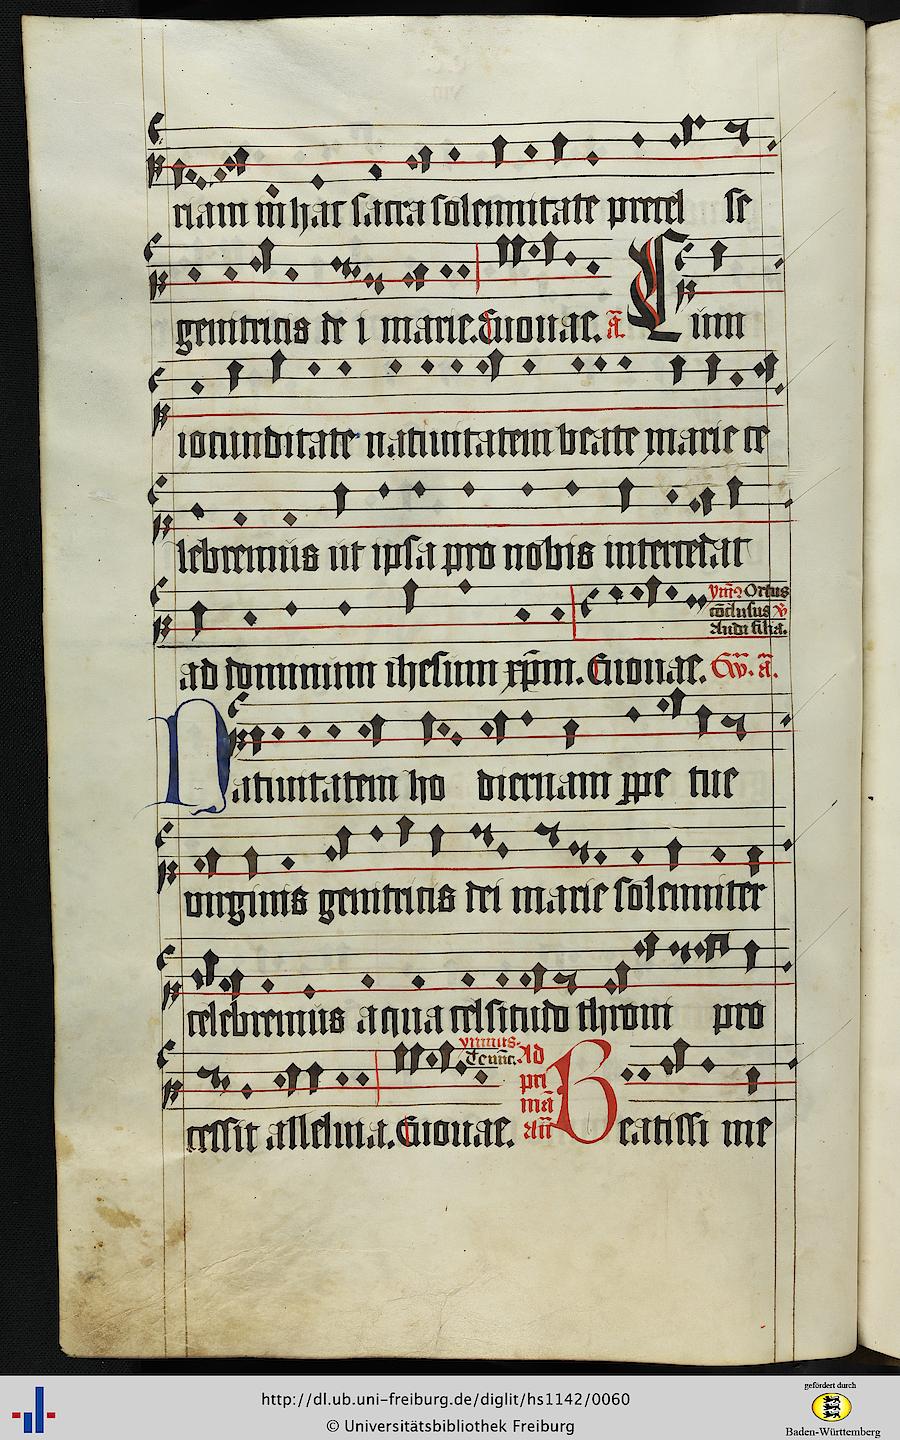 riam in hac sacra solennitate precel se
genitricis dei marie. Euouae. a. Cum
iocunditate natiuitatem beate marie ce
lebremus ut ipsa pro nobis intercedat
ymn9 Ortus
conclusus v
Audi filia.
ad dominum ihesum xpm. Euouae. Ew. a.
Natiuitatem ho diernam ppe tue
virginis genitricis dei marie solenniter
celebremus a qua celsitudo throni pro
Ad
pri
mā
añ
cessit alleluia. Euouae. Beatissi me
http://dl.ub.uni-freiburg.de/diglit/hs1142/0060
© Universitätsbibliothek Freiburg
gefördert durch
Baden-Württemberg